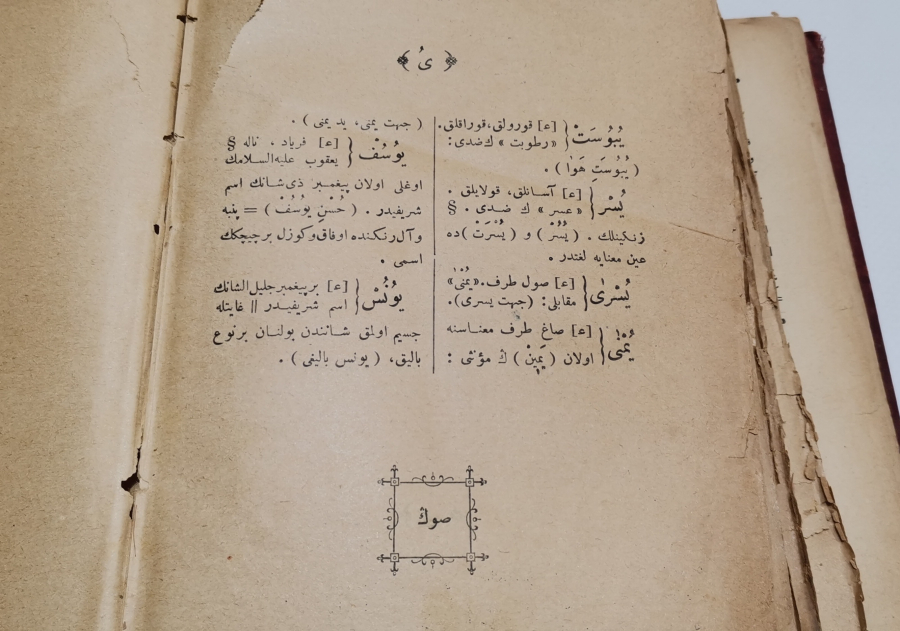 ﴾ ىُ ﴿
يُبُوسَتْ { [ع] قورولق، قوراقلق.
«رطوبت» ك ضدى:
( يُبُوسَتِ هَوَا ) .
يُسْر { [ع] آسانلق، قولايلق .
«عسر» ك ضدى . §
زنكينلك . ( يُسُرْ ) و ( يُسْرَتْ ) ده
عين معنايه لغتدر .
يُسْرٰى { [ع] صول طرف. «يُمْنٰى»
مقابلى: (جهت يسرى).
يُمْنٰى { [ع] صاغ طرف معناسنه
اولان ( يَمِينْ ) ڭ مؤنثى :
( جهت يمنى، يد يمنى ) .
يوُسُفْ { [ع] فرياد ، ناله §
يعقوب عليه‌السلامك
اوغلى اولان پيغمبر ذى‌شانك اسم
شريفيدر . ( حُسْنِ يوُسُفْ ) = پنبه
وآل رنكنده اوفاق وكوزل بر چيچكك
اسمى .
يوُنُسْ { [ع] بر پيغمبر جليل‌الشانك
اسم شريفيدر || غايتله
جسيم اولمق شانندن بولنان بر نوع
باليق، ( يونس باليغى ) .
صوڭ